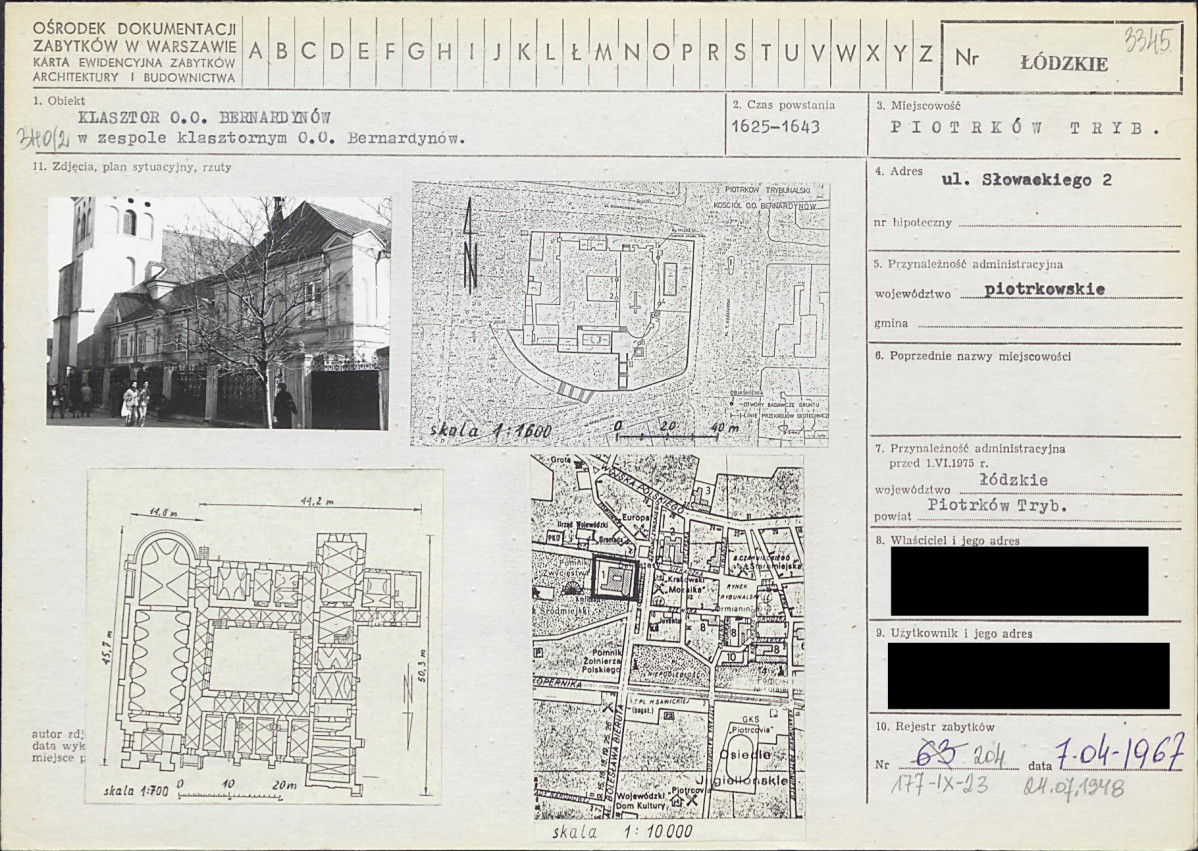 OŚRODEK DOKUMENTACJI
ZABYTKÓW W WARSZAWIE
KARTA EWIDENCYJNA ZABYTKÓW
ARCHITEKTURY I BUDOWNICTWA
A B C D E F G H I J K L Ł M N O P R S T U V W X Y Z
Nr ŁÓDZKIE
3345
1. Obiekt
KLASZTOR O.O. BERNARDYNÓW
w zespole klasztornym O.O. Bernardynów.
2. Czas powstania
1625-1643
3. Miejscowość
PIOTRKÓW TRYB.
11. Zdjęcia, plan sytuacyjny, rzuty
PIOTRKÓW TRYBUNALSKI
KOŚCIÓŁ O.O. BERNARDYNÓW
N
OBJAŚNIENIA
OTWORY BADAWCZE GRUNTU
LINIE PRZEKROJÓW GEOTECHNICZ
skala 1:1600
0 20 40 m
44,2 m
14,6 m
45,7 m
50,3 m
skala 1:700
0 10 20m
autor zdj
data wyk
miejsce p
Grota
WOJSKA POLSKIEGO
3
Europa
Urząd Wojewódzki
PKO
Gromada
1
Pomnik
Zwycięstwa
Krakowski
"Mozaika"
Staromiejska
RYNEK
TRYBUNALSKI
8
8
8
10
Pomnik
Żołnierza
Polskiego
NIEPODLEGŁOŚCI
KOPERNIKA
PL. H. SAWICKIEJ
(bagaż.)
GKS
"Piotrcovia"
Osiedle
Jagiellońskie
AL. BOLESŁAWA BIERUTA
Wojewódzki
Dom Kultury
"Piotrcovia"
skala 1:10000
4. Adres
ul. Słowackiego 2
nr hipoteczny
5. Przynależność administracyjna
województwo piotrkowskie
gmina
6. Poprzednie nazwy miejscowości
7. Przynależność administracyjna
przed 1.VI.1975 r.
województwo łódzkie
powiat Piotrków Tryb.
8. Właściciel i jego adres
9. Użytkownik i jego adres
10. Rejestr zabytków
Nr 63 204 data 7.04-1967
177-IX-23 24.07.1948